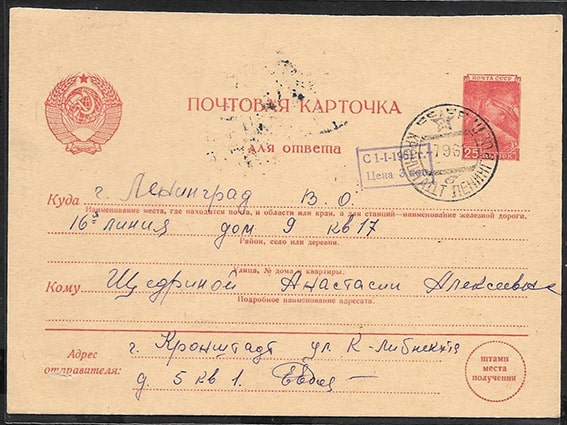 ПОЧТА СССР
25 КОП
ПОЧТОВАЯ КАРТОЧКА
для ответа
С 1-I-1961
Цена 3 коп
КРОНШТАДТ ЛЕНИНГ
Куда г. Ленинград В. О.
Наименование места, где находится почта, и области или края, а для станций—наименование железной дороги.
16я линия дом 9 кв 17
Район, село или деревня.
Улица, № дома и квартиры.
Кому Щедриной Анастасии Алексеевне
Подробное наименование адресата.
Адрес отправителя:
г. Кронштадт ул. К-Либкнехта
д. 5 кв 1.
штамп
места
получения